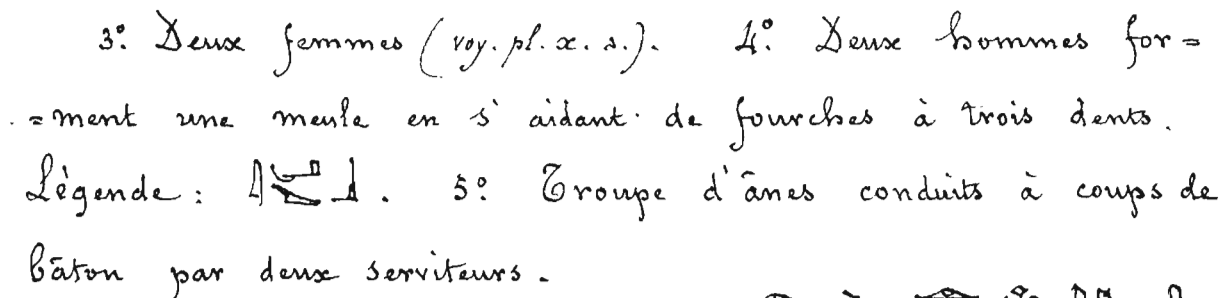 3° Deux femmes (voy. pl. x. s.). 4° Deux hommes for=
=ment une meule en s'aidant de fourches à trois dents.
Légende : . 5° Troupe d'ânes conduits à coups de
bâton par deux serviteurs.